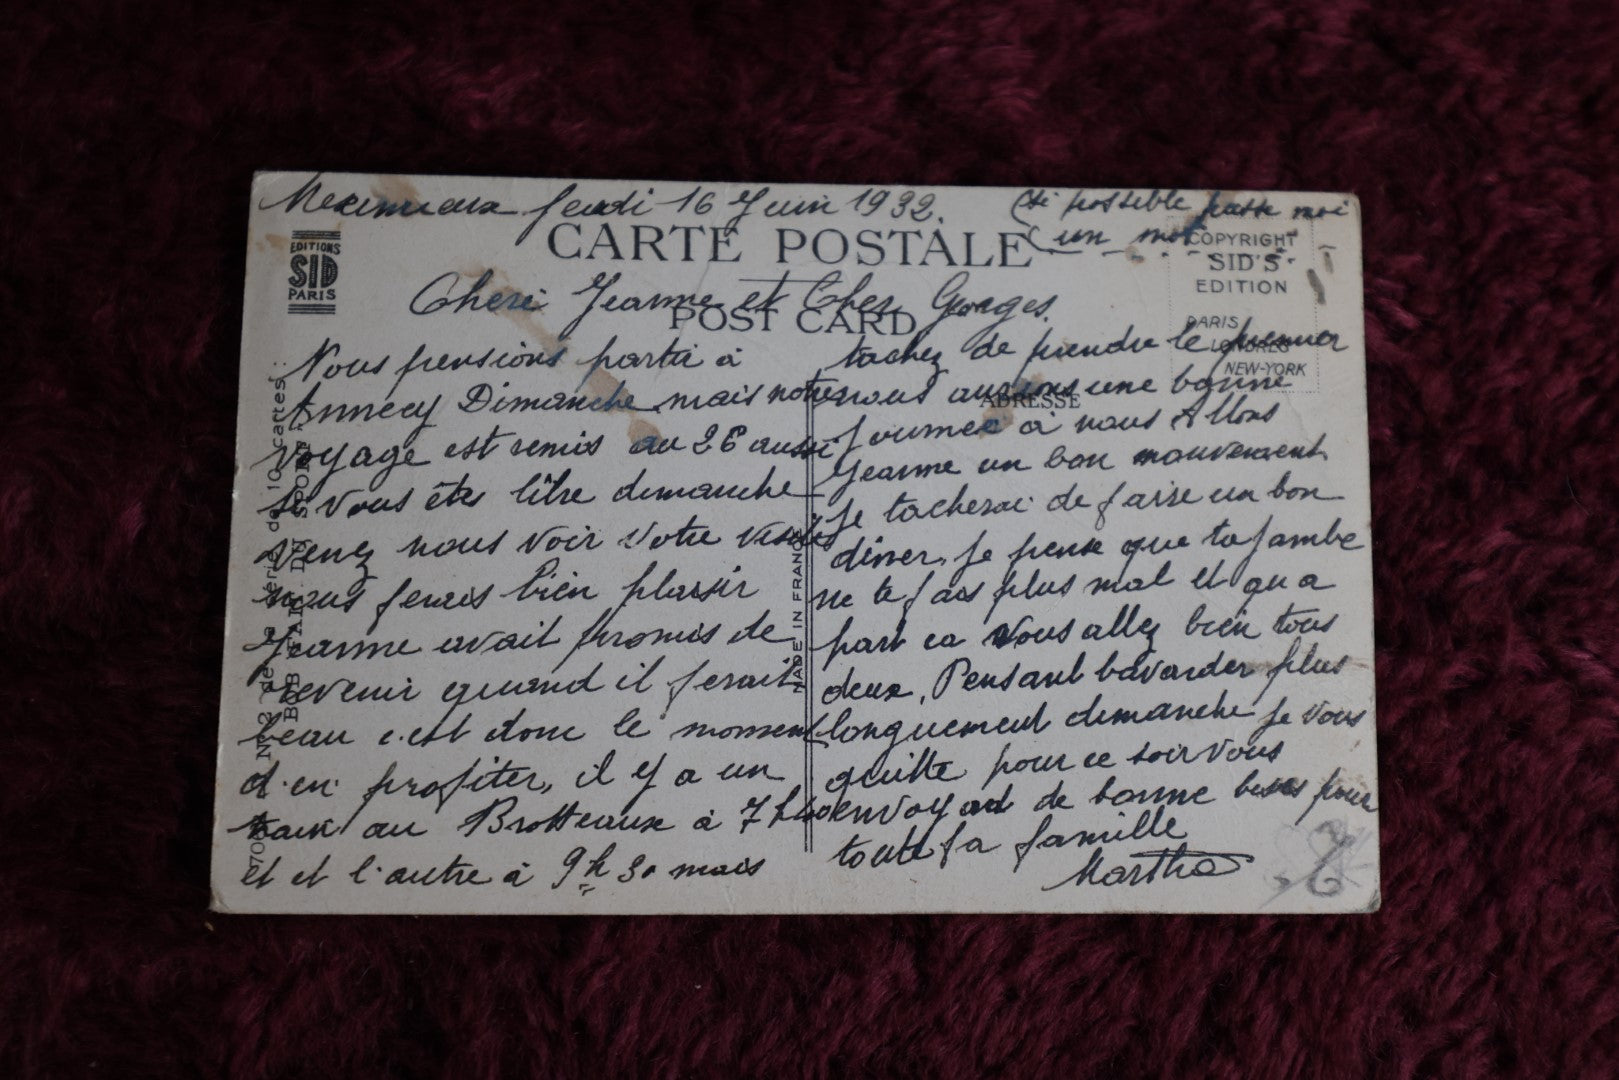 Meximieux Jeudi 16 Juin 1932.
(si possible passe moi
(un mot
EDITIONS
SID
PARIS
CARTE POSTALE
POST CARD
COPYRIGHT
SID'S
EDITION
PARIS
LONDRES
NEW-YORK
ADRESSE
MADE IN FRANCE
Cheri Jeanne et Cher Georges.
Nous pensions partir à
Annecy Dimanche mais notre
voyage est remis au 26 aussi
si vous êtes libre dimanche
venez nous voir votre visite
nous ferais bien plaisir
Jeanne avait promis de
revenir quand il ferait
beau c'est donc le moment
d'en profiter, il y a un
train au Brotteaux à 7h40
et et l'autre à 9h 30 mais
tachez de prendre le premier
nous aurions une bonne
journée à nous Allons
Jeanne un bon mouvement
je tacherai de faire un bon
diner, je pense que ta jambe
ne te fais plus mal et qu a
part ca vous allez bien tous
deux, Pensant bavarder plus
longuement dimanche je vous
quitte pour ce soir vous
envoyant de bonne bises pour
toute la famille
Martha